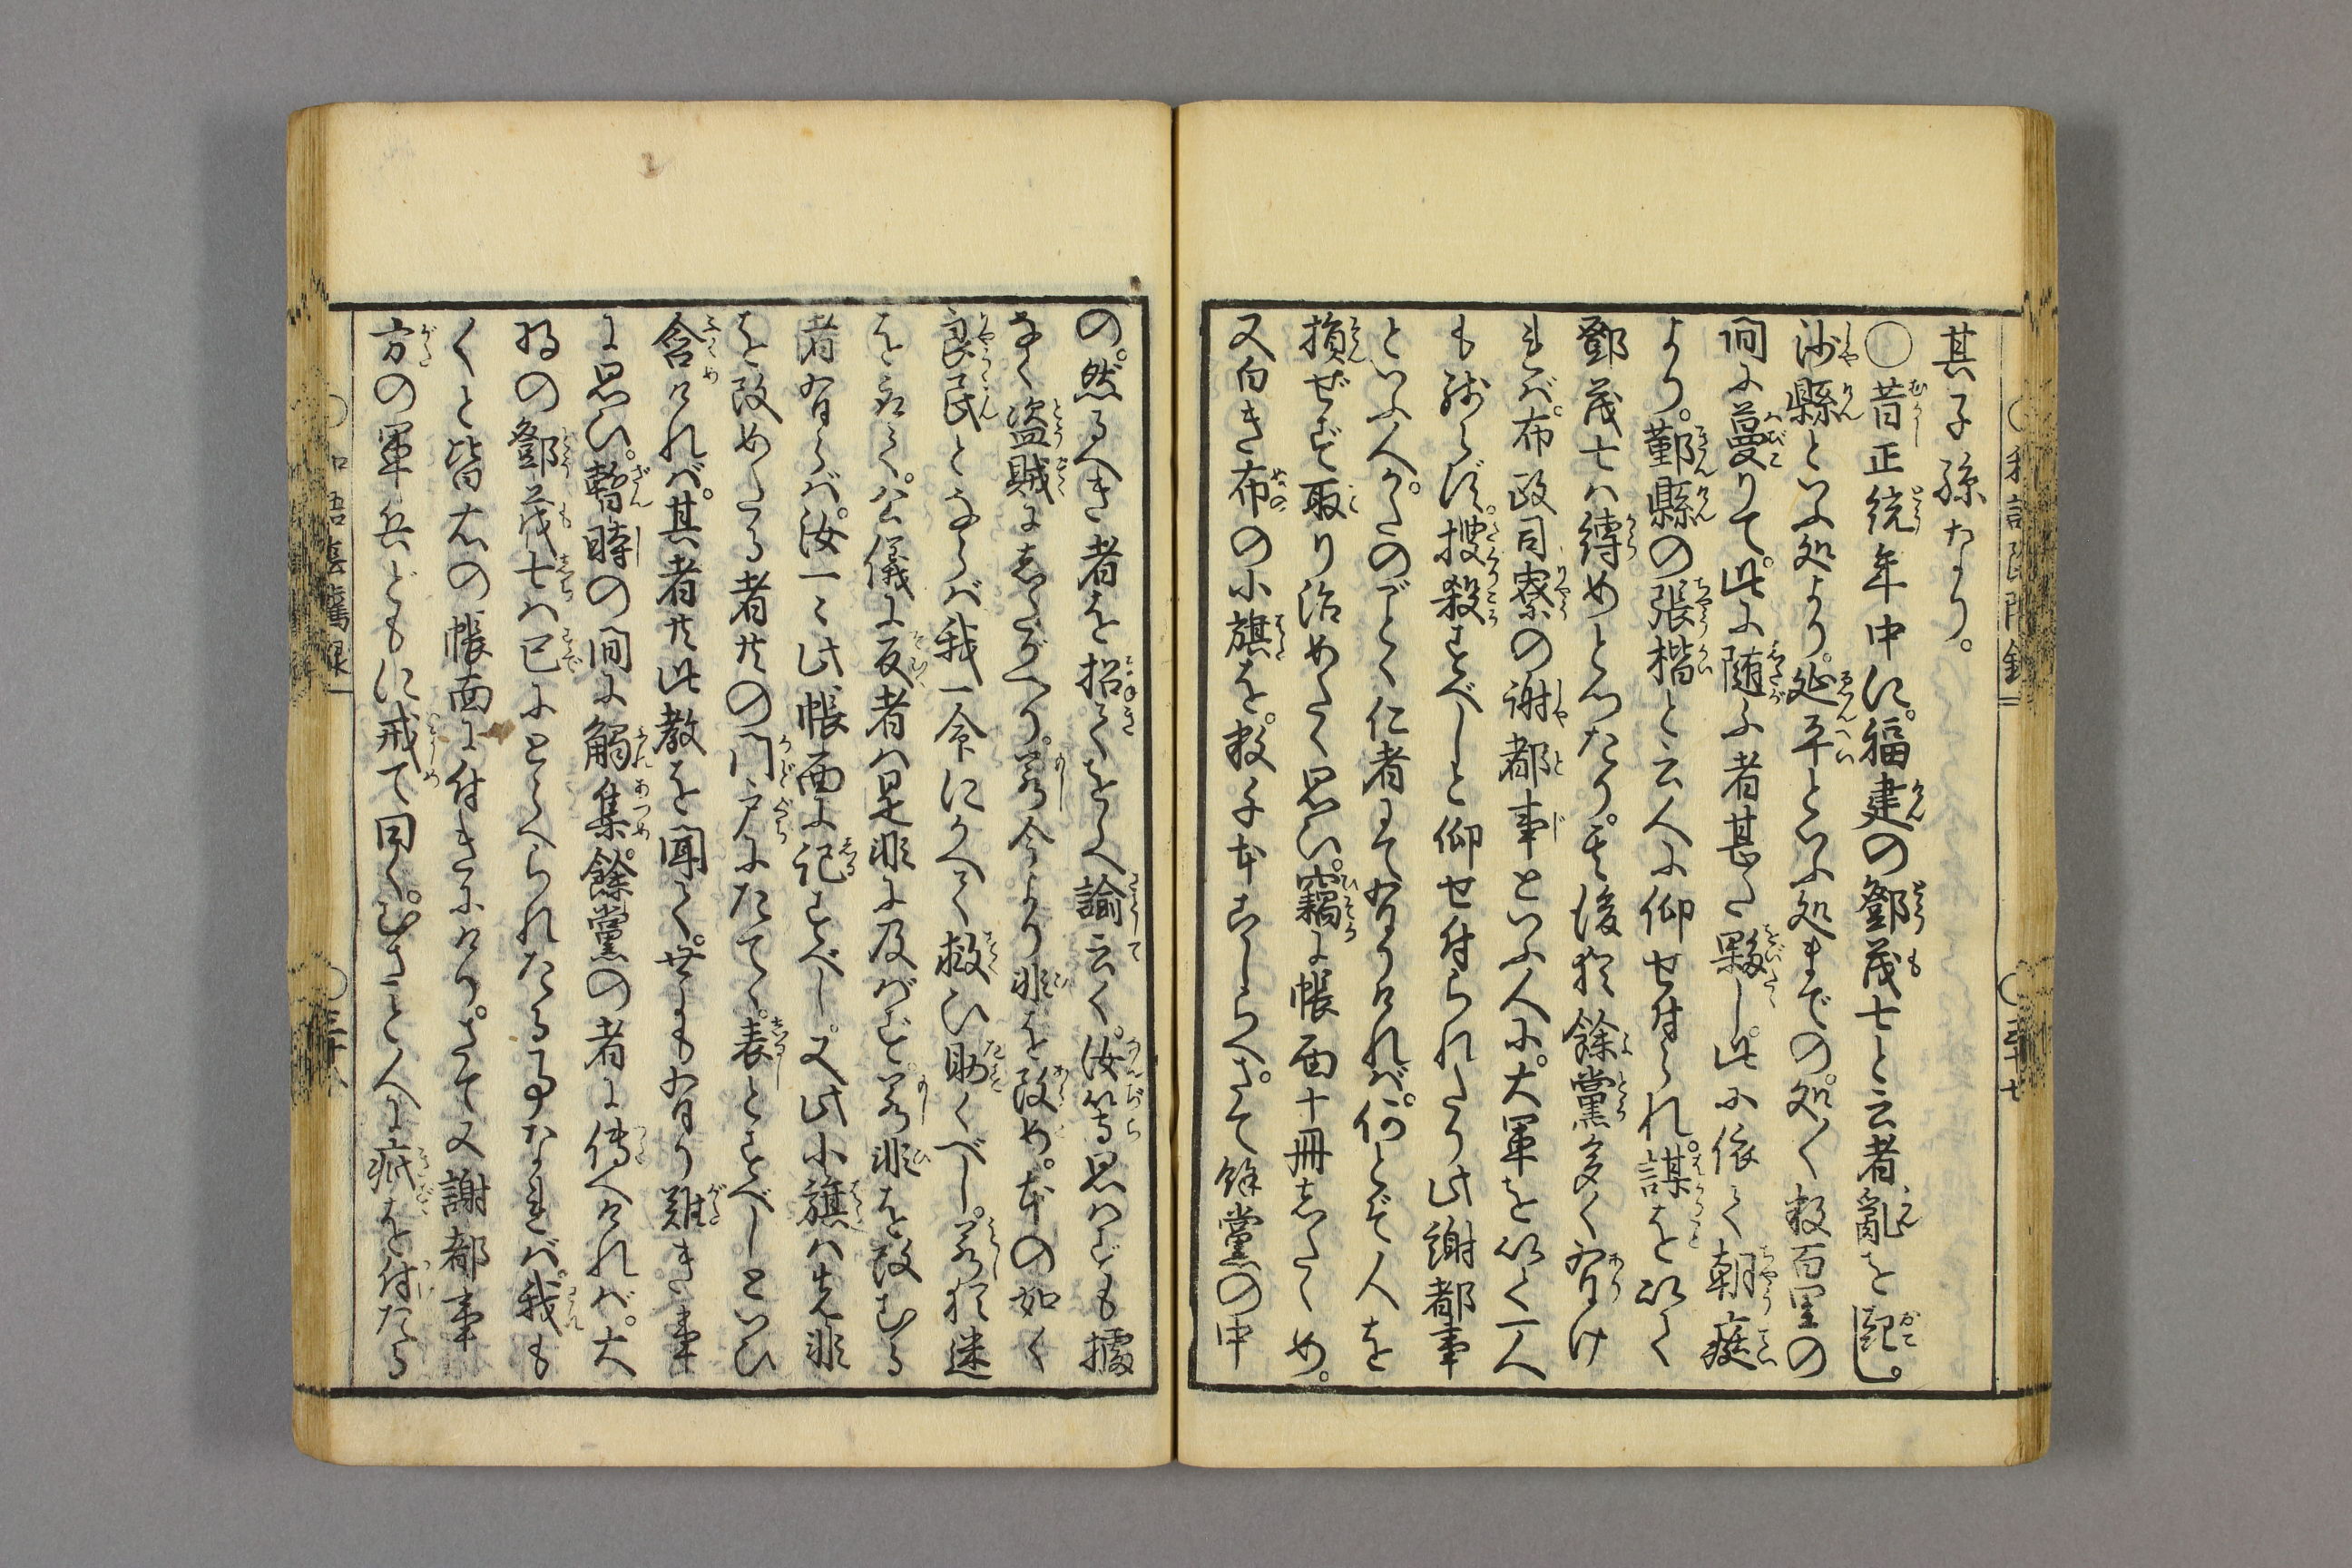 其子孫なり。
○昔正統年中に。福建の鄧茂七と云者亂を起し。
沙縣といふ処より。延平といふ処までの。処〱数百里の
間に蔓りて。此に随ふ者甚だ夥し。此に依て朝廷
より。鄞縣の張楷と云人に仰せ付られ。謀を以て
鄧茂七は縛めとつたり。其後猶餘黨多く有け
れば。布政司寮の謝都事といふ人に。大軍を以て一人
も残らず。捜殺すべしと仰せ付られたり此謝都事
といふ人。かたのごとく仁者にて有りければ。何とぞ人を
損ぜず取り治めたく思い。竊に帳面十冊したゝめ。
又白き布の小旗を。数千本こしらへ。さて餘黨の中
の。然るべき者を招てをしへ諭云く。汝等思はずも據
なく盗賊にしたがへり。若今より非を改め。本の如く
良民とならば我一命にかへて救ひ助くべし。若猶迷
を執て。公儀に反者は是非に及ばず。若非を改むる
者有らば。汝一〻此帳面に記すべし。又此小旗は先非
を改めたる者共の門戸にたてゝ。表とすべしといひ
含ければ。其者共此教を聞て。世にも有り難き事
に思ひ。暫時の間に觸集。餘黨の者に傳へければ。大
将の鄧茂七は已にとらへられたる事なれば。我も
〱と皆右の帳面に付きにけり。さて又謝都事
方の軍兵どもに戒て曰く。むさと人に疵を付たる